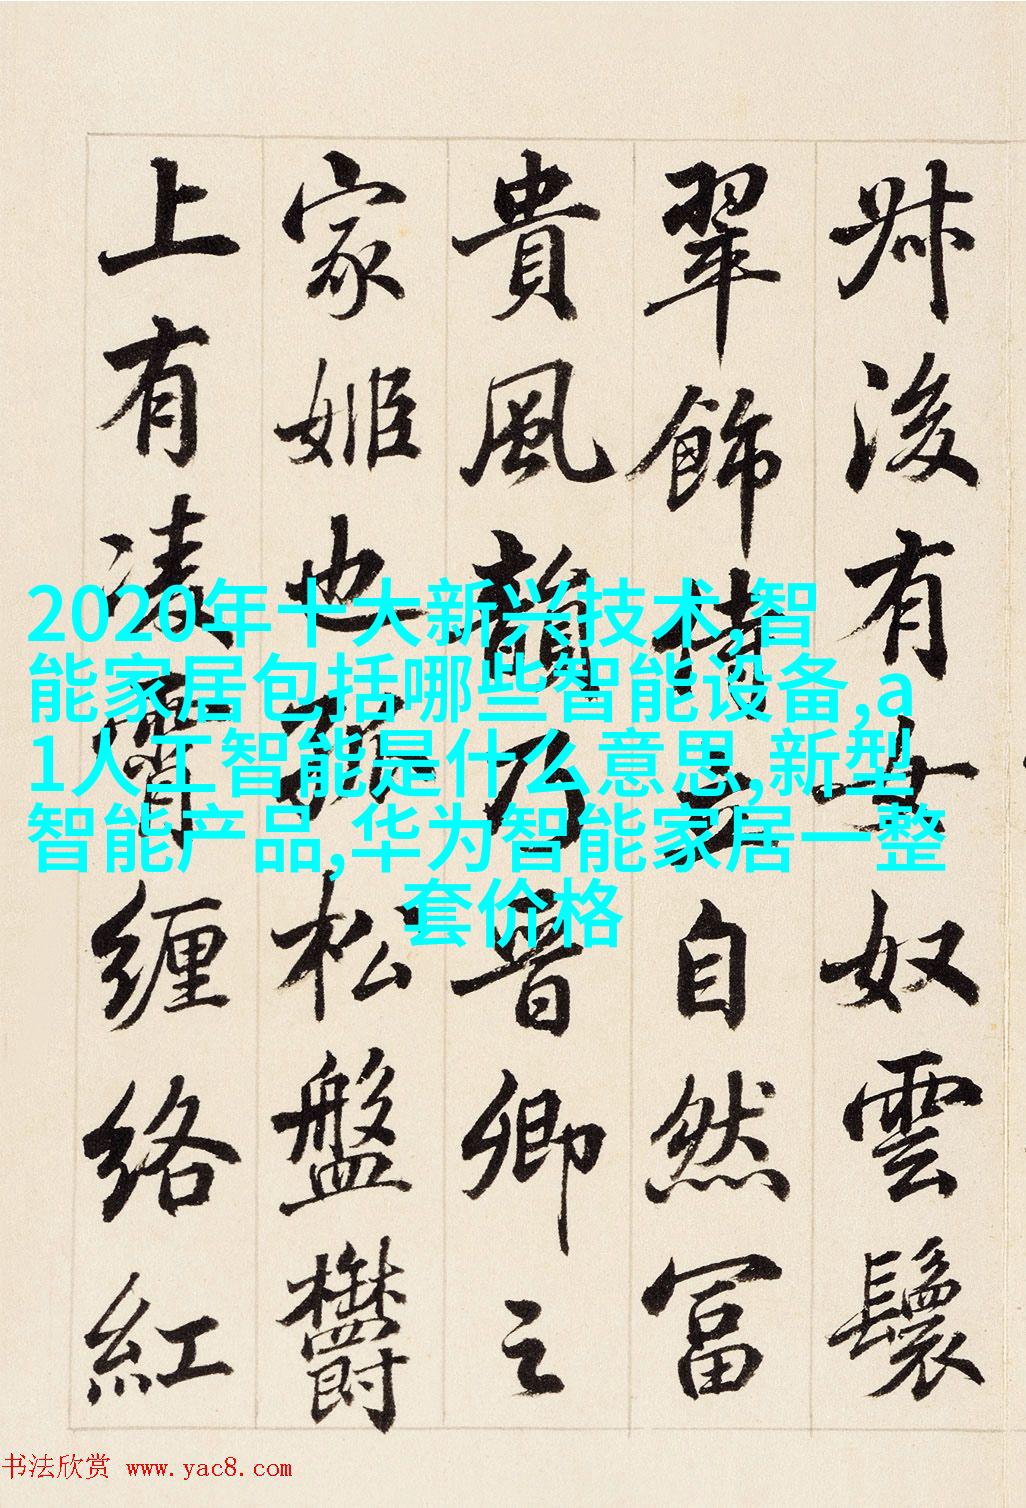 叔後有女奴雲鬟
翠飾侍立自然富
貴風韻乃晉卿之
家姬也孤松盤欝
上有凌霄纏絡紅
2020年十大新兴技术,智
能家居包括哪些智能设备,a
1人工智能是什么意思,新型
智能产品,华为智能家居一整
套价格
书法欣赏 www.yac8.com